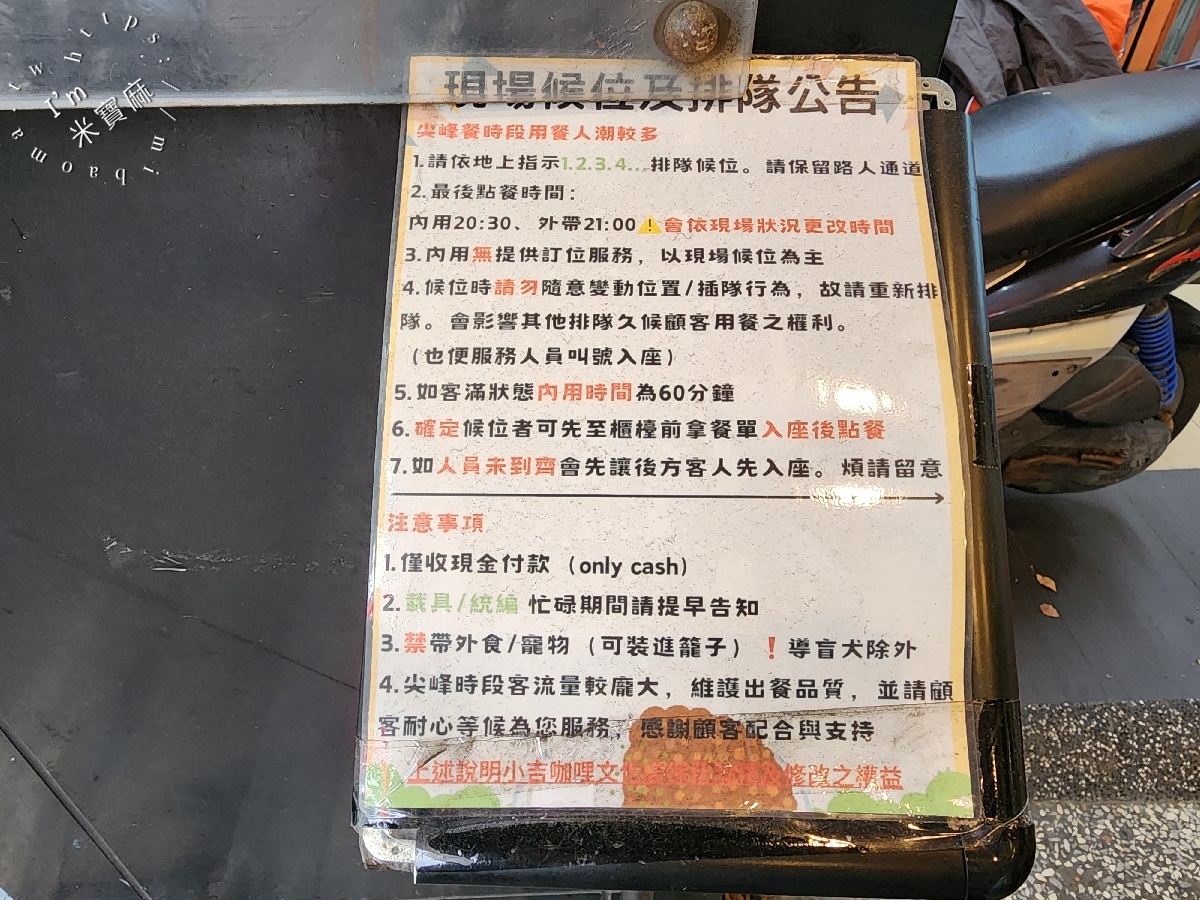 現場候位及排隊公告
尖峰餐時段用餐人潮較多
1.請依地上指示1.2.3.4...排隊候位。請保留路人通道
2.最後點餐時間:
內用20:30、外帶21:00⚠會依現場狀況更改時間
3.內用無提供訂位服務，以現場候位為主
4.候位時請勿隨意變動位置/插隊行為，故請重新排
隊。會影響其他排隊久候顧客用餐之權利。
(也便服務人員叫號入座)
5.如客滿狀態內用時間為60分鐘
6.確定候位者可先至櫃檯前拿餐單入座後點餐
7.如人員未到齊會先讓後方客人先入座。煩請留意
注意事項
1.僅收現金付款（only cash）
2.載具/統編 忙碌期間請提早告知
3.禁帶外食/寵物（可裝進籠子）❗導盲犬除外
4.尖峰時段客流量較龐大，維護出餐品質，並請顧
客耐心等候為您服務，感謝顧客配合與支持
上述說明小吉咖哩文化修改之權益
I'm
米寶麻
https://mibaomatw